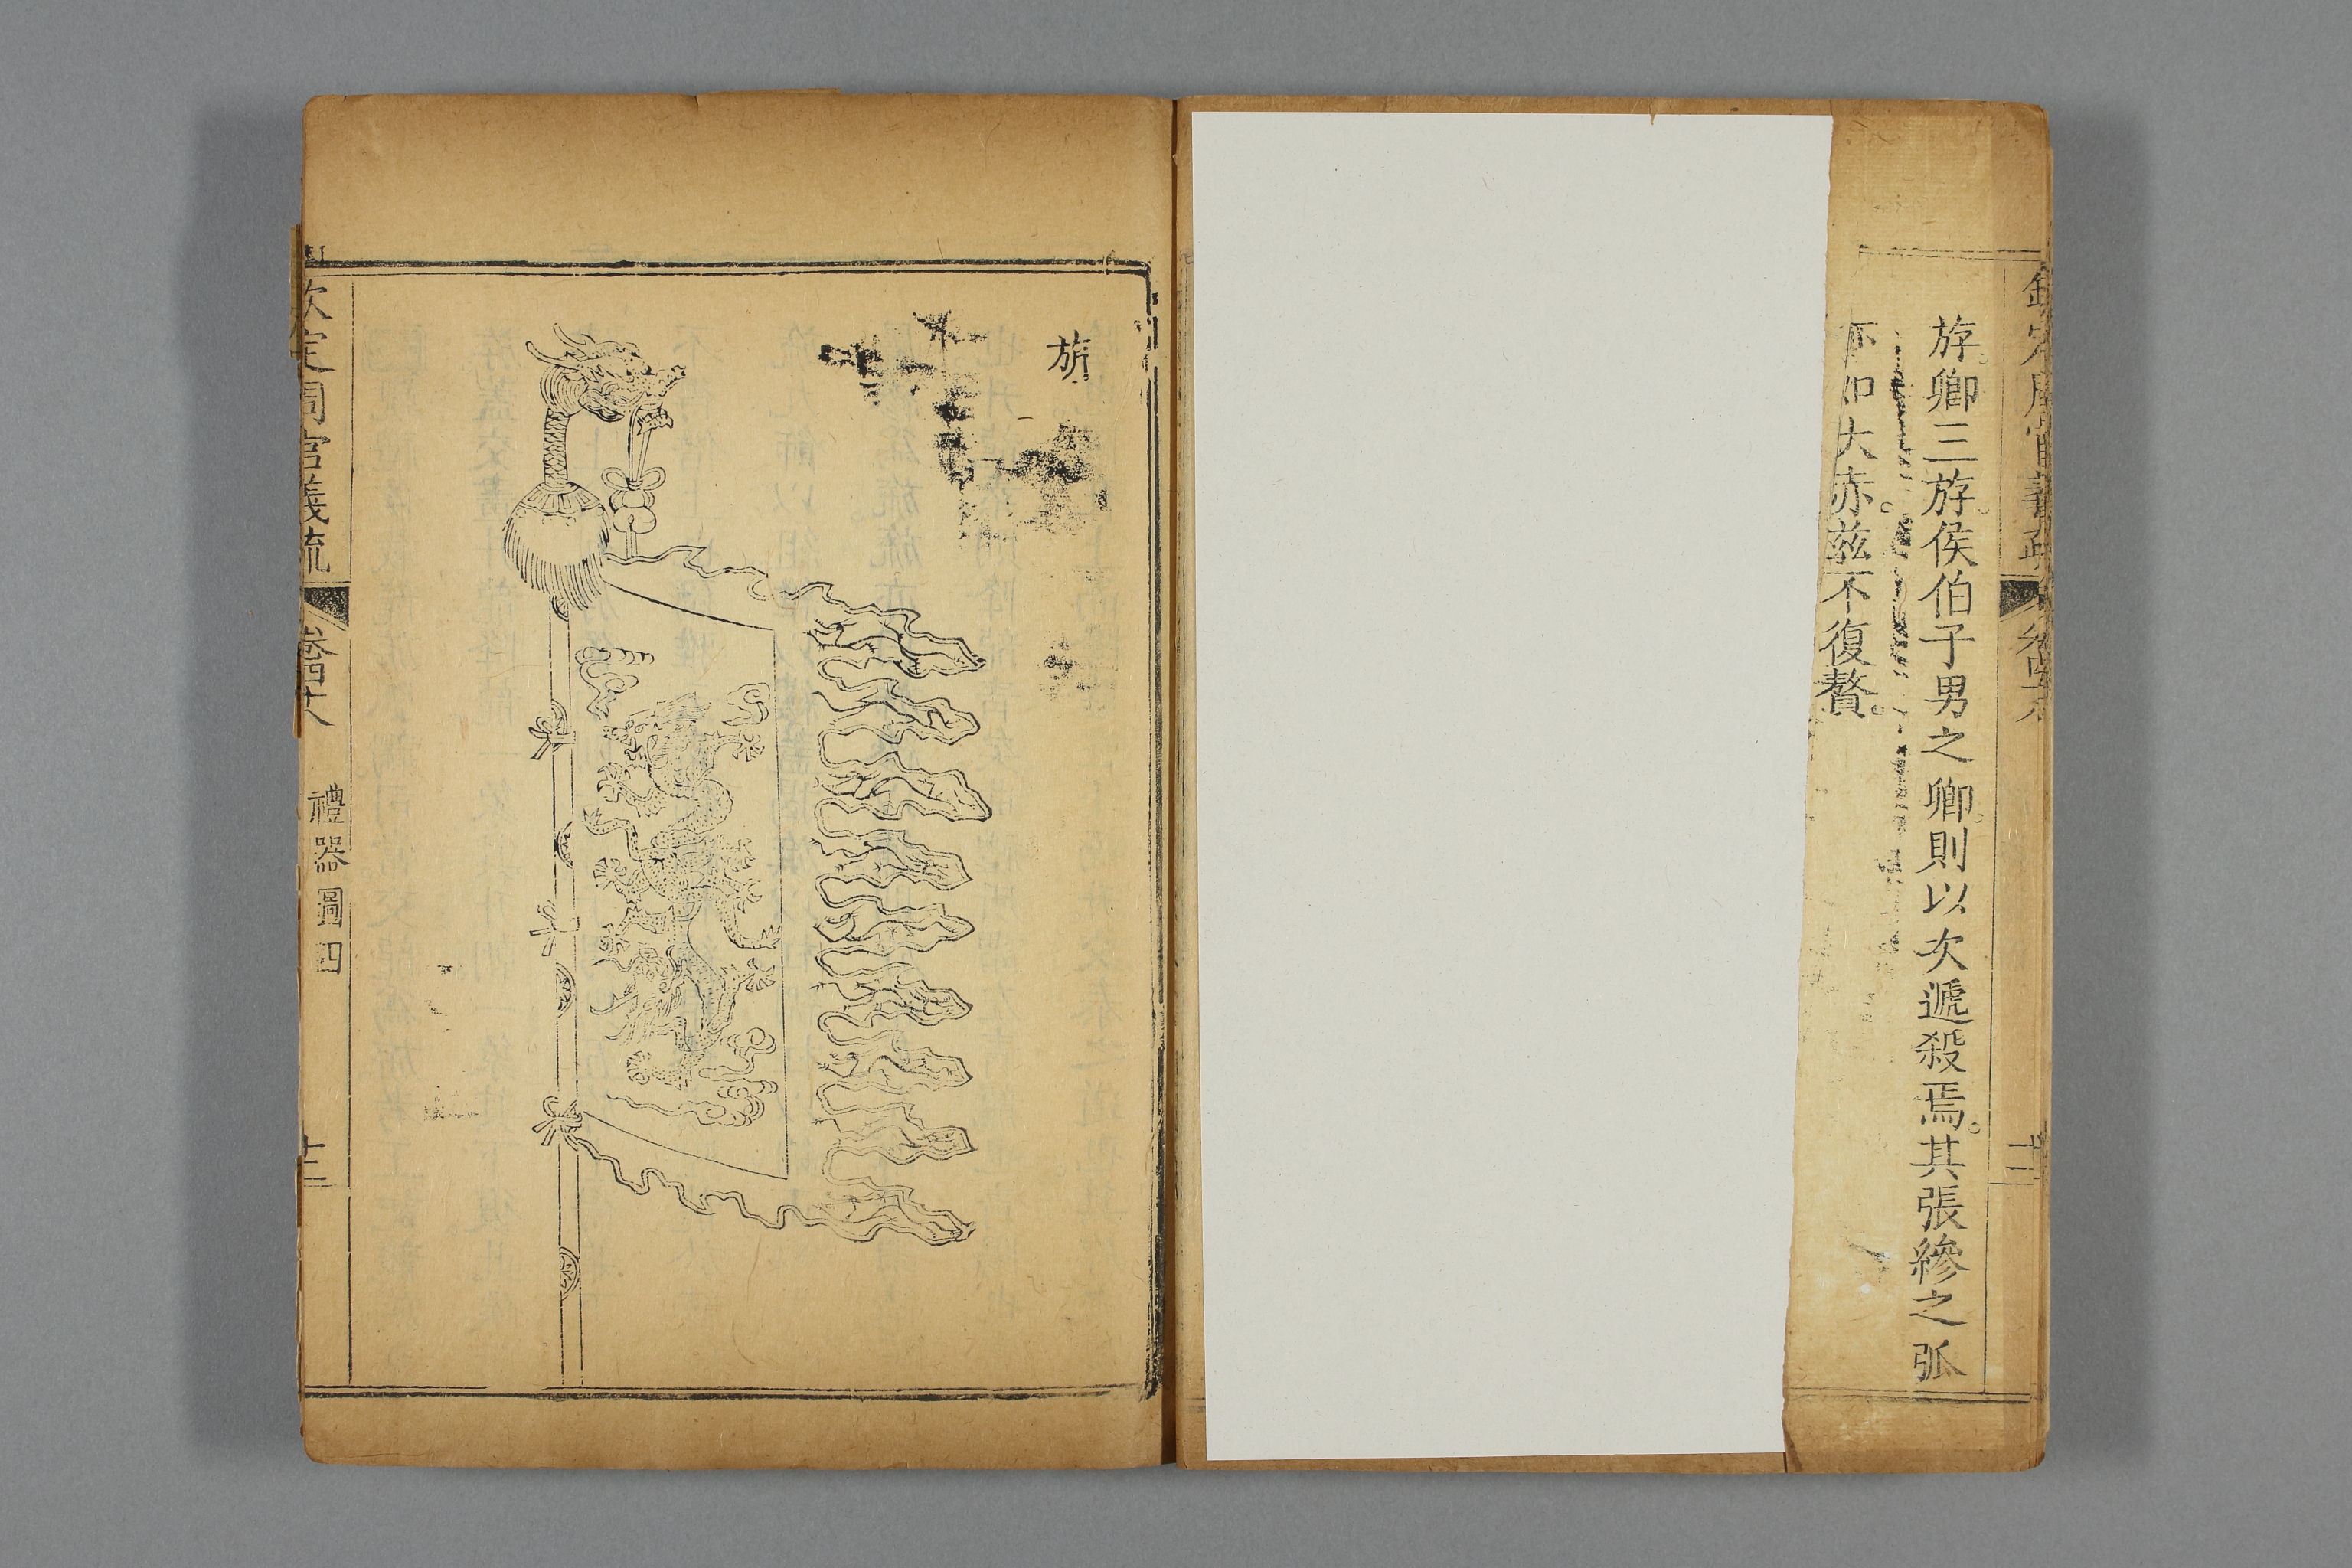 欽定周官義疏 卷四十八 十二
斿。卿三斿。侯伯子男之卿。則以次遞殺焉。其張縿之弧
亦如大赤。兹不復贅。
旂
欽定周官義疏 卷四十八 禮器圖四 十三